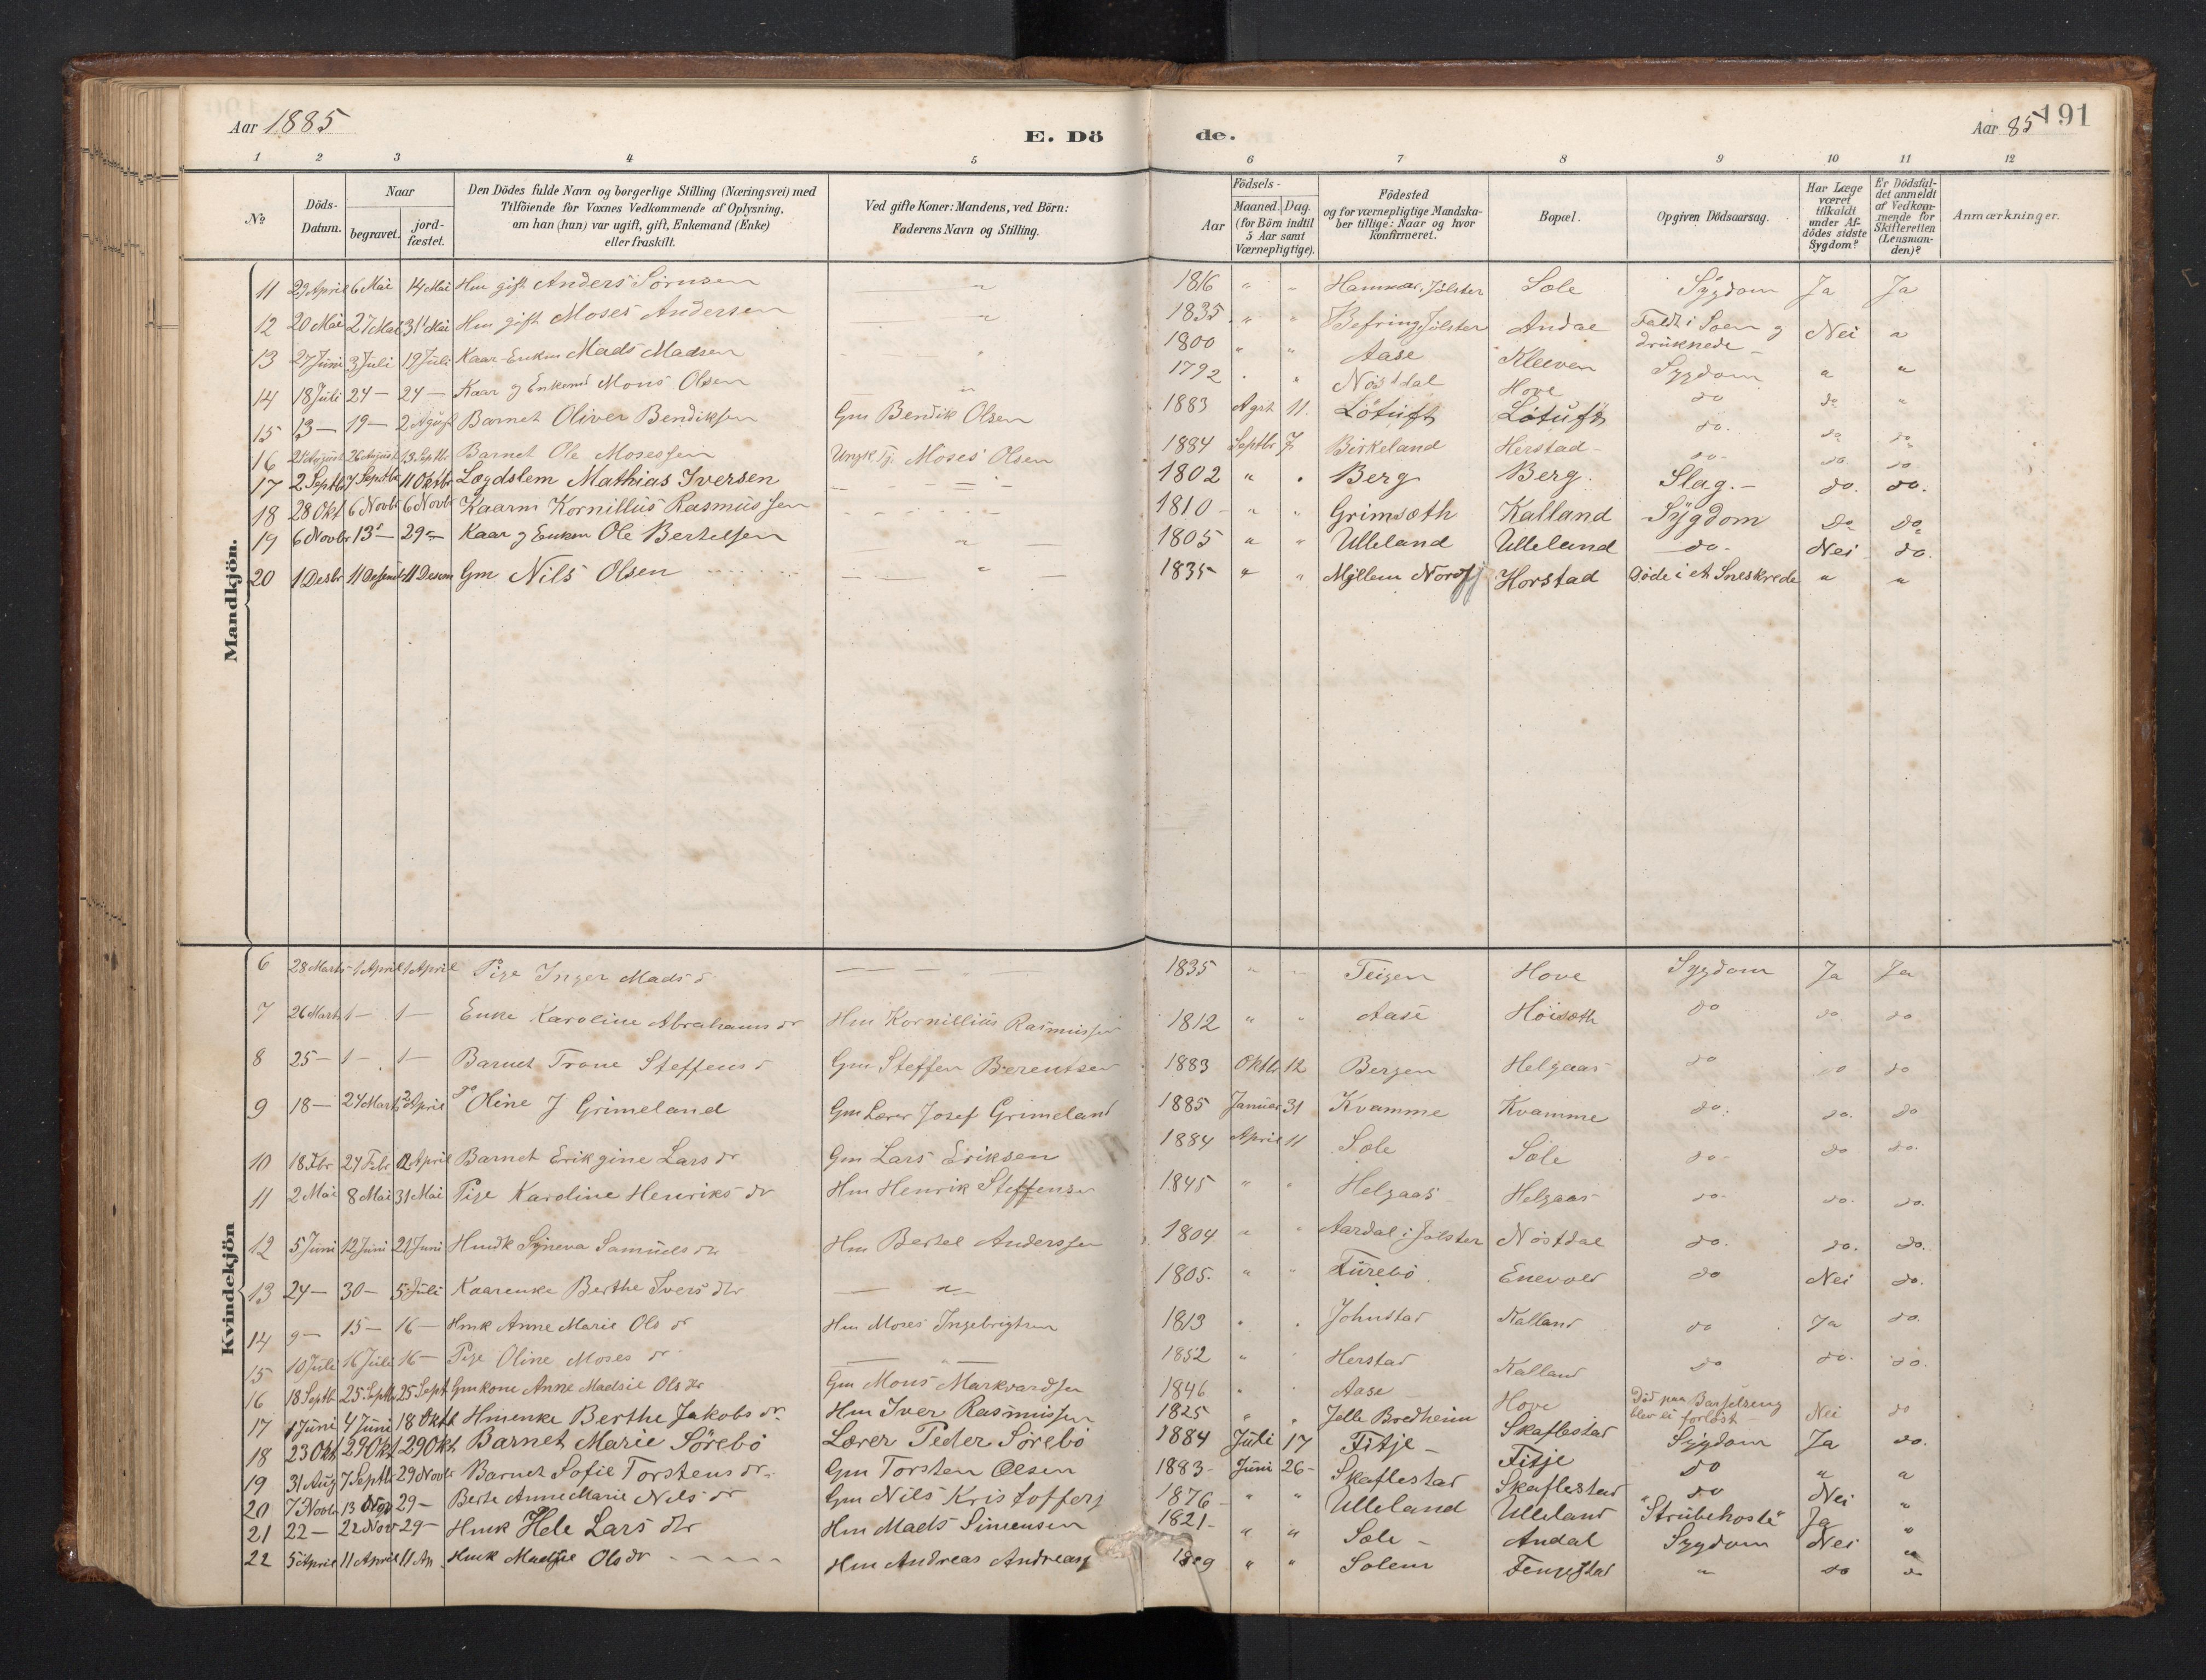 Aar 1885
E. Döde.
Aar 85
191
1 2 3 4 5 6 7 8 9 10 11 12
No
Döds-Datum.
Naar
begravet.
jord-fæstet.
Den Dödes fulde Navn og borgerlige Stilling (Næringsvei) med
Tilföiende for Voxnes Vedkommende af Oplysning,
om han (hun) var ugift, gift, Enkemand (Enke)
eller fraskilt.
Ved gifte Koner: Mandens, ved Börn:
Faderens Navn og Stilling.
Födsels-
Aar
Maaned. Dag.
(for Börn indtil
5 Aar samt
Værnepligtige).
Födested
og for værnepligtige Mandska-
ber tillige: Naar og hvor
konfirmeret.
Bopæl.
Opgiven Dödsaarsag.
Har Læge
været
tilkaldt
under Af-
dödes sidste
Sygdom?
Er Dödsfal-
det anmeldt
af Vedkom-
mende for
Skifteretten
(Lensman-
den)?
Anmærkninger.
Mandkjön.
11 29 April 6 Mai 14 Mai Hm gift Anders Sörnsen " 1816 " " Hammer i Jölster Sole Sygdom Ja Ja
12 20 Mai 27 Mai 31 Mai Hm gift Moses Andersen " 1835 " " Befring Jölster Andae Faldt i Soen og druknede Nei "
13 27 Juni 3 Juli 19 Juli Kaar-Enkm Mads Madsen " 1800 " " Aase Kleeven Sygdom " "
14 18 Juli 24 — 24 — Kaar og Enkemd Mons Olsen " 1792 " " Nösdal Hove do do "
15 13 — 19 — 2 August Barnet Oliver Bendiksen Gm Bendik Olsen 1883 Agst 11. Lötuft Lötuft do. do do
16 26 August 13 Septbr Barnet Ole Mosessen Ungk Tj. Moses Olsen 1884 Septbr 7. Birkeland Herstad do- do. do
17 2 Septb 7 Septbr 11 Oktbr Lægdslem Mathias Iversen 1802 " " Berg Berg. Slag.- do. do.
18 28 Okt 6 Novb 6 Novb Kaarm Kornillius Rasmussen 1810 - " " Grimsæth Kalland Sygdom Do Do
19 6 Novbr 13 — 29 — Kaar og Enkem Ole Bertelsen " 1805 " " Ulleland Ulleland do- Nei do.
20 1 Desbr 11 Desem Gm Nils Olsen " 1835 " " Myllem Nordfj Horstad Döde i et Sneskrede " "
Kvindekjön
6 28 Marts 1 April 1 April Pige Inger Mads d 1835 " " Teigen Hove Sygdom Ja Ja
7 26 Marts 1 — 1 — Enke Karoline Abrahams dr Hm Kornillius Rasmussen 1812 " " Aase Höisæth do do. do
8 25 — 1 — 1 — Barnet Trone Steffens d Gm Steffen Berentsen 1883 Oktb 12 Bergen Helgaas do do do
9 18 — 24 Marts April do Oline J Grimeland Gm Lærer Josef Grimeland 1885 Januar 31 Kvamme Kvamme do. do. do
10 18 Fbr 27 Febr April Barnet Erikgine Lars dr Gm Lars Eriksen 1884 April 11 Sole Sole do- do do.
11 2 Mai 8 Mai 31 Mai Pige Karoline Henriks dr Hm Henrik Steffensen 1845 " " Helgaas Helgaas do- do. do.
12 5 Juni 12 Juni 21 Juni Hmdk Syneva Samuels dr Hm Bertel Anderssen 1804 " " Aardal i Jölster Nöstdae do. do. do.
13 24 — 30 — 5 Juli Kaarenke Berthe Ivers dtr " 1805. " " Furebö Enevold do Nei do.
14 9 — 15 — 16 — Hmk Anne Marie Ols dr Hm Moses Ingebrigtsen 1813 " " Johnstad Kalland do Ja do.
15 10 Juli 16 Juli 16 — Pige Oline Moses dr " 1852 " " Herstad Kalland do do. do.
16 18 Septb 25 Septb 25 Sept Gmkone Anne Madsie Ols dr Gm Mons Markvardsen 1846 " " Aase Hove Död paa Barselseng blev ei forlöst Nei do
17 1 Juni 4 Juni 18 Oktb Hmenke Berthe Jakobs dr Hm Iver Rasmussen 1825 " " Jelle Bredheim Skaflestad Sygdom Ja do.
18 23 Okt 29 Okt 29 Okt Barnet Marie Sörebö Lærer Peder Sörebö 1884 Juli 17 Fitje - Fitje do " "
19 31 Aug 7 Septb 29 Novb Barnet Sofie Torstens dr. Gm Torsten Olsen 1883- Juni 26- Skaflestad Skaflestad do Nei "
20 7 Novb 13 Nov 29 — Berte Anne Marie Nils dr Gm Nils Kristoffers 1876 " " Ulleland Ulleland "Strubehoste" Ja "
21 22 — 22 Nov 29 — Hmk Hele Lars dtr Hm Mads Simensen 1821- " " Sole - Andal Sygdom Nei "
22 5 April 11 April 11 Ap Hmk Madsie Ols dr Hm Andreas Andreas " " Solem " do "